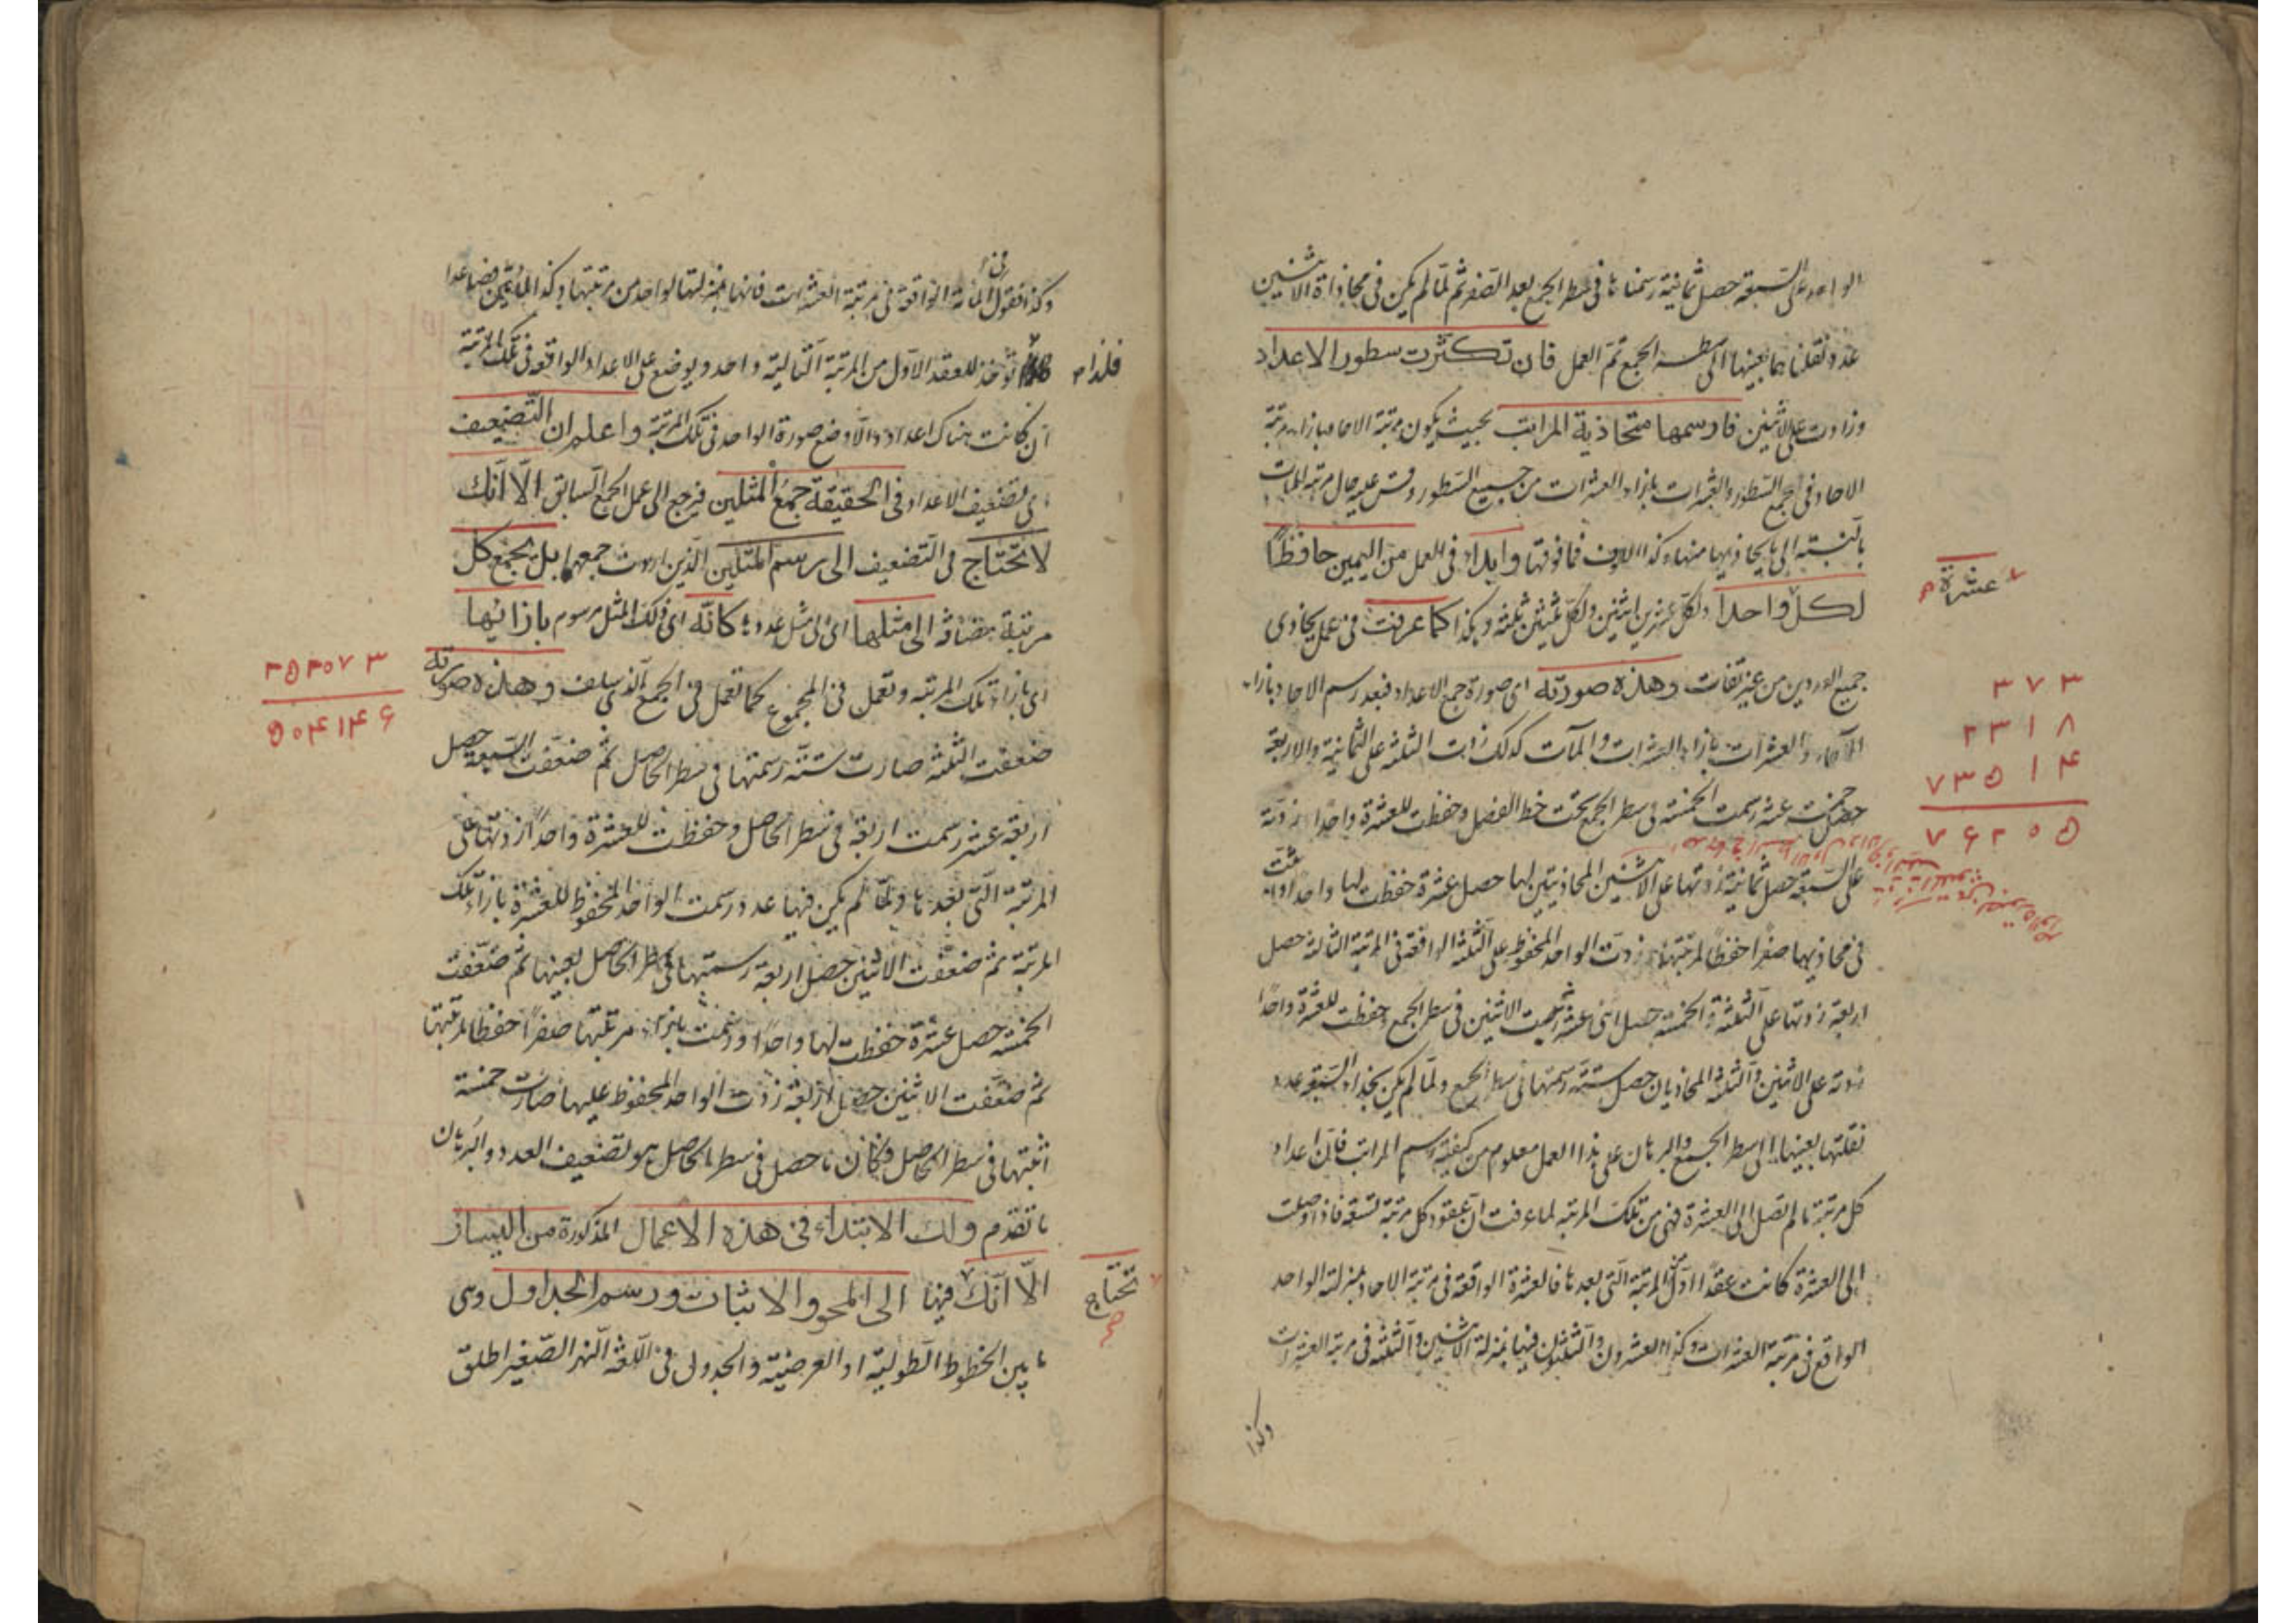 الواحد على السبعة حصل ثمانية رسمناها فى سطر الجمع بعد الصفر ثم لما لم يكن فى محاذاة الاثنين
عدد نقلناهما بعينهما الى سطر الجمع تم العمل فان تكثرت سطور الاعداد
وزادت على اثنين فارسمها متحاذية المراتب بحيث يكون مرتبة الاحاد بازاء مرتبة
الاحاد فى جميع السطور والعشرات بازاء العشرات من جميع السطور وقس عليه حال مرتبة المآت
بالنسبة الى ما يحاذيها منها وكذا الالوف فما فوقها وابدأ فى العمل من اليمين حافظا
لكل واحدا ولكل عشرين اثنين ولكل ثلثين ثلثة وهكذا كما عرفت فى عمل يحاذى
عشرة
جميع من غير تفاوت وهذه صورته اى صورة جمع الاعداد فبعد رسم الاحاد بازاء
الآحاد والعشرات بازاء العشرات والمآت كذلك زدت الثلثة على الثمانية والاربعة
٣ ٧ ٣
٢ ٣ ١ ٨
٧ ٣ ٥ ١ ۴
٧ ۶ ٢ ٥ ٥
حصل خمسة عشر رسمت الخمسة فى سطر الجمع تحت خط الفصل وحفظت للعشرة واحدا زدته
على السبعة حصل ثمانية زدتها على الاثنين المحاذيتين لها حصل عشرة حفظت لها واحدا واثبت
فى محاذيهما صفرا حفظا لمرتبتها زدت الواحد المحفوظ على الثلثة الواقعة فى المرتبة الثالثة حصل
اربعة زدتها على الثلثة والخمسة حصل اثنى عشر رسمت الاثنين فى سطر الجمع وحفظت للعشرة واحدا
زدته على الاثنين والثلثة المحاذيان حصل ستة رسمتها فى سطر الجمع ولما لم يكن بحذاء السبعة عدد
نقلتها بعينها الى سطر الجمع والبرهان على هذا العمل معلوم من كيفية رسم المراتب فان اعداد
كل مرتبة ما لم تصل الى العشرة فهى من تلك المرتبة لما عرفت ان عقود كل مرتبة تسعة فاذا وصلت
الى العشرة كانت عقدا اول من المرتبة التى بعدها فالعشرة الواقعة فى مرتبة الاحاد بمنزلة الواحد
الواقع فى مرتبة العشرات وكذا العشرون والثلثون فيها بمنزلة الاثنين والثلثة فى مرتبة العشرات
وكذا
وكذا نقول فى المائة الواقعة فى مرتبة العشرات فانها بمنزلتها لواحد من مرتبتها وكذا المأتين فصاعدا
فلذا تؤخذ للعقد الاول من المرتبة التالية واحد ويوضع على الاعداد الواقعة فى تلك المرتبة
ان كانت هناك اعداد والا وضع صورة الواحد فى تلك المرتبة واعلم ان التضعيف
اى تضعيف الاعداد فى الحقيقة جمع المثلين فيرجع الى عمل الجمع السابق الا انك
لا تحتاج فى التضعيف الى رسم المثلين الذين اردت جمعهما بل تجمع كل
مرتبة مضافة الى مثلها اى الى مثل عدد كانه اى ذلك المثل مرسوم بازائها
اى بازاء تلك المرتبة وتعمل فى المجموع كما تعمل فى الجمع الذى سلف وهذه صورته
٢ ٥ ٢ ٠ ٧ ٣
٥ ٠ ۴ ١ ۴ ۶
ضعفت الثلثة صارت ستة رسمتها فى سطر الحاصل ثم ضعفت السبعة حصل
اربعة عشر رسمت اربعة فى سطر الحاصل وحفظت للعشرة واحدا ازدتها على
المرتبة التى بعدها ولما لم يكن فيها عدد رسمت الواحد المحفوظ للعشرة بازاء تلك
المرتبة ثم ضعفت الاثنين حصل اربعة رسمتها فى سطر الحاصل بعينها ثم ضعفت
الخمسة حصل عشرة حفظت لها واحدا ورسمت بازاء مرتبتها صفرا حفظا لمرتبتها
ثم ضعفت الاثنين حصل اربعة زدت الواحد المحفوظ عليها صارت خمسة
اثبتها فى سطر الحاصل فكان ما حصل فى سطر الحاصل هو تضعيف العدد والبرهان
ما تقدم ولك الابتداء فى هذه الاعمال المذكورة من اليسار
الا انك فيها تحتاج الى المحو والاثبات ورسم الجداول وهى
ما بين الخطوط الطولية او العرضية والجدول فى اللغة النهر الصغير اطلق